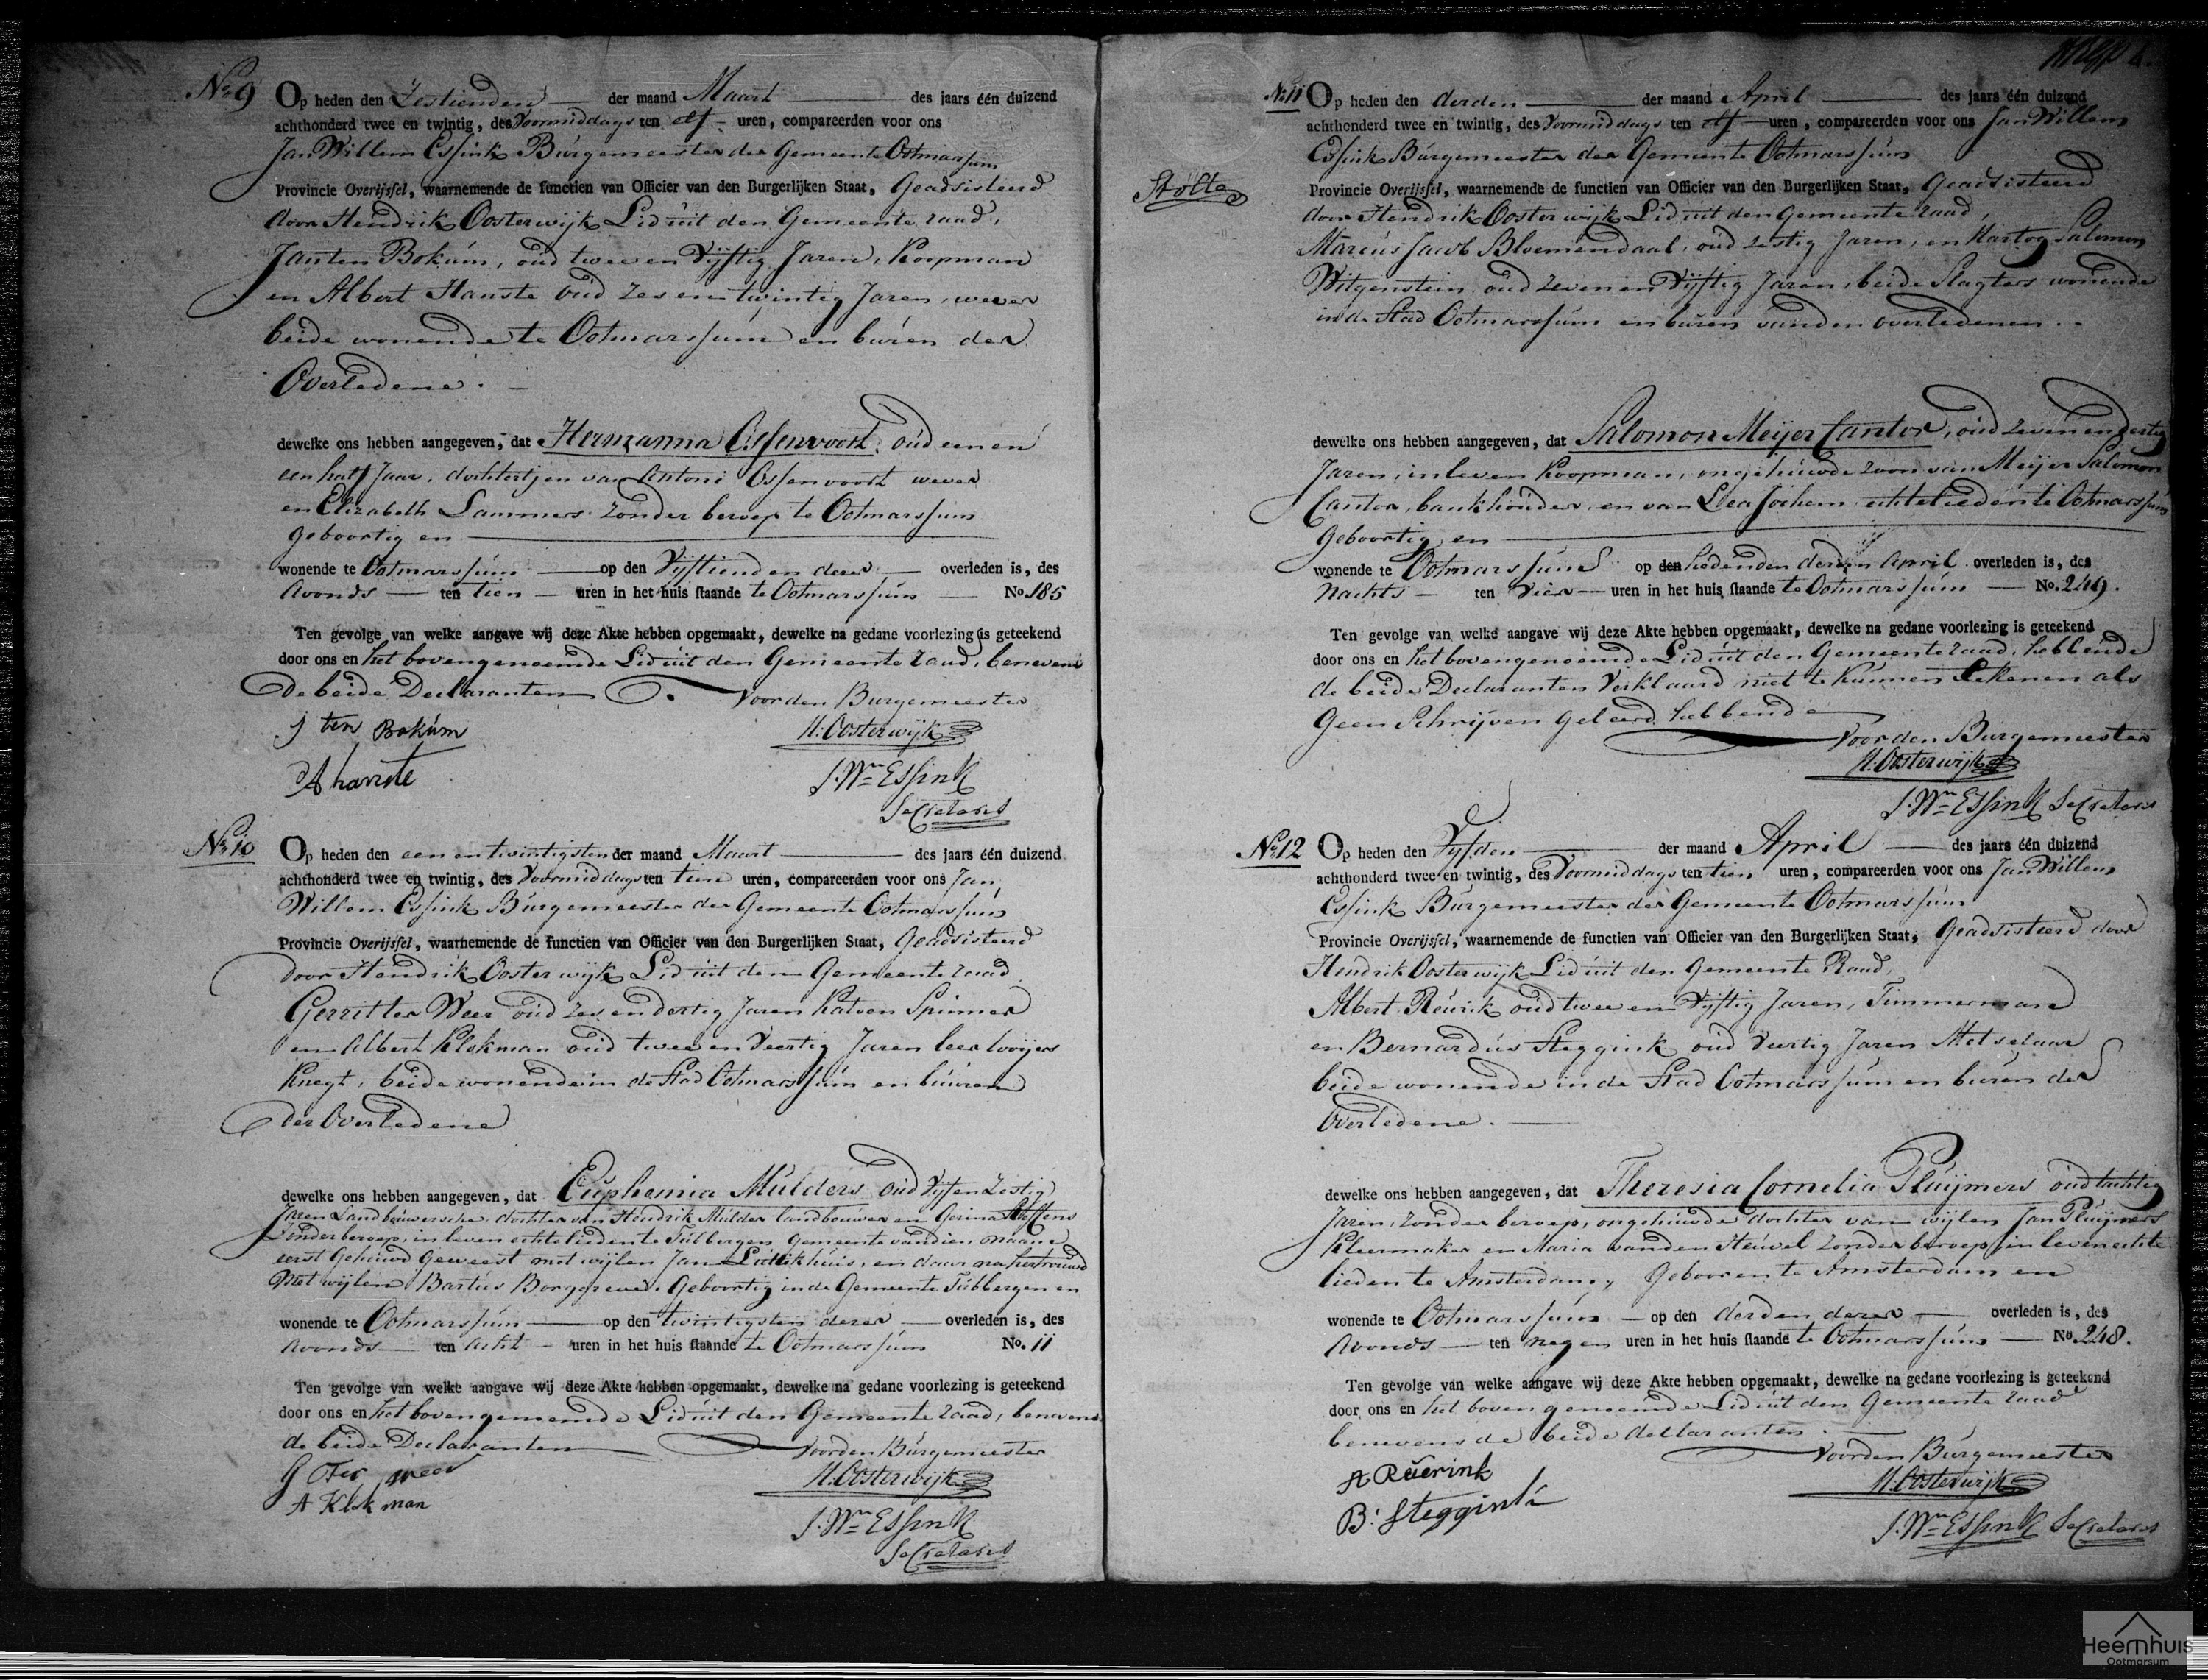 No. 9 Op heden den Zestienden der maand Maart des jaars één duizend
achthonderd twee en twintig, des Voormiddags ten elf uren, compareerden voor ons
Jan Willem Essink Burgemeester der Gemeente Ootmarssum
Provincie Overijssel, waarnemende de functien van Officier van den Burgerlijken Staat, Geadsisteerd
door Hendrik Oosterwijk Lid uit den Gemeente raad,
Jan ten Bokum, oud twee en Vijftig Jaren, Koopman
en Albert Hanste oud zes en twintig Jaren, wever
beide wonende te Ootmarssum en buren der
Overledene.
dewelke ons hebben aangegeven, dat Hermanna Ossenvoort, oud een en
een half Jaar, dochtertjen van Antoni Ossenvoort wever
en Elizabeth Lammers zonder beroep te Ootmarssum
geboortig en
wonende te Ootmarssum op den Vijftienden dezer overleden is, des
Avonds ten tien uren in het huis staande te Ootmarssum No. 185
Ten gevolge van welke aangave wij deze Akte hebben opgemaakt, dewelke na gedane voorlezing is geteekend
door ons en het bovengenoemde Lid uit den Gemeente raad, benevens
de beide Declaranten Voor den Burgemeester
J ten Bokum H. Oosterwijk
A hanste J. Wm Essink
Secretaris
No. 10 Op heden den een en twintigsten der maand Maart des jaars één duizend
achthonderd twee en twintig, des Voormiddags ten tien uren, compareerden voor ons Jan
Willem Essink Burgemeester der Gemeente Ootmarssum
Provincie Overijssel, waarnemende de functien van Officier van den Burgerlijken Staat, Geadsisteerd
door Hendrik Oosterwijk Lid uit den Gemeente raad
Gerrit ter Weer oud zes en dertig Jaren Katoen Spinner
en Albert Klokman oud twee en Veertig Jaren leer looijers
Knegt, beide wonende in de Stad Ootmarssum en buuren
der Overledene
dewelke ons hebben aangegeven, dat Euphemia Mulders oud Vijf en Zestig
Jaren Landbouwersche dochter van Hendrik Mulder landbouwer en Gerina
Zonder beroep, in leven echtelieden te Tubbergen Gemeente van dien naam
eerst Gehuwd Geweest met wijlen Jan Luttikhuis, en daar na hertrouwd
Met wijlen Bartus Borggreve, Geboortig in de Gemeente Tubbergen en
wonende te Ootmarssum op den twintigsten dezer overleden is, des
Avonds ten acht uren in het huis staande te Ootmarssum No. 11
Ten gevolge van welke aangave wij deze Akte hebben opgemaakt, dewelke na gedane voorlezing is geteekend
door ons en het bovengenoemde Lid uit den Gemeente raad, benevens
de beide Declaranten Voor den Burgemeester
G Ter weer H. Oosterwijk
A Klokman J. Wm Essink
Secretaris
No. 11 Op heden den derden der maand April des jaars één duizend
achthonderd twee en twintig, des Voormiddags ten elf uren, compareerden voor ons Jan Willem
Essink Burgemeester der Gemeente Ootmarssum
Stolte
Provincie Overijssel, waarnemende de functien van Officier van den Burgerlijken Staat, Geadsisteerd
door Hendrik Oosterwijk Lid uit den Gemeente raad,
Marcus Jacob Bloemendaal, oud zestig Jaren, en Hartog Salomon
Witgenstein oud zeven en Vijftig Jaren, beide Slagters wonende
in de Stad Ootmarssum en buren van den overledenen.
dewelke ons hebben aangegeven, dat Salomon Meijer Cantor, oud zeven en dertig
Jaren, in leven Koopman, ongehuwde zoon van Meijer Salomon
Cantor, bankhouder, en van Lea Jochem echtelieden te Ootmarssum
Geboortig, en
wonende te Ootmarssum op den hedenden derden April overleden is, des
Nachts ten Vier uren in het huis staande te Ootmarssum No. 249.
Ten gevolge van welke aangave wij deze Akte hebben opgemaakt, dewelke na gedane voorlezing is geteekend
door ons en het bovengenoemde Lid uit den Gemeente raad, hebbende
de beide Declaranten Verklaard niet te kunnen tekenen als
Geen Schrijven geleerd hebbende
Voor den Burgemeester
H. Oosterwijk
J. Wm Essink Secretaris
No. 12 Op heden den Vyfden der maand April des jaars één duizend
achthonderd twee en twintig, des Voormiddags ten tien uren, compareerden voor ons Jan Willem
Essink Burgemeester der Gemeente Ootmarssum
Provincie Overijssel, waarnemende de functien van Officier van den Burgerlijken Staat, Geadsisteerd door
Hendrik Oosterwijk Lid uit den Gemeente Raad,
Albert Reurik oud twee en Vijftig Jaren, Timmerman
en Bernardus Steggink oud Veertig Jaren Metselaar
beide wonende in de Stad Ootmarssum en buren der
Overledene.
dewelke ons hebben aangegeven, dat Theresia Cornelia Pluijmers oud tachtig
Jaren, zonder beroep, ongehuwde dochter van wijlen Jan Pluijmers
Kleermaker en Maria van den Heuvel zonder beroep, in leven echte
lieden te Amsterdam, Gebooren te Amsterdam en
wonende te Ootmarssum op den derden dezer overleden is, des
Avonds ten negen uren in het huis staande te Ootmarssum No. 248.
Ten gevolge van welke aangave wij deze Akte hebben opgemaakt, dewelke na gedane voorlezing is geteekend
door ons en het boven genoemde Lid uit den Gemeente raad
benevens de beide declaranten.
Voor den Burgemeester
A Rüerink H. Oosterwijk
B: Steggink J. Wm Essink Secretaris
Heemhuis
Ootmarsum